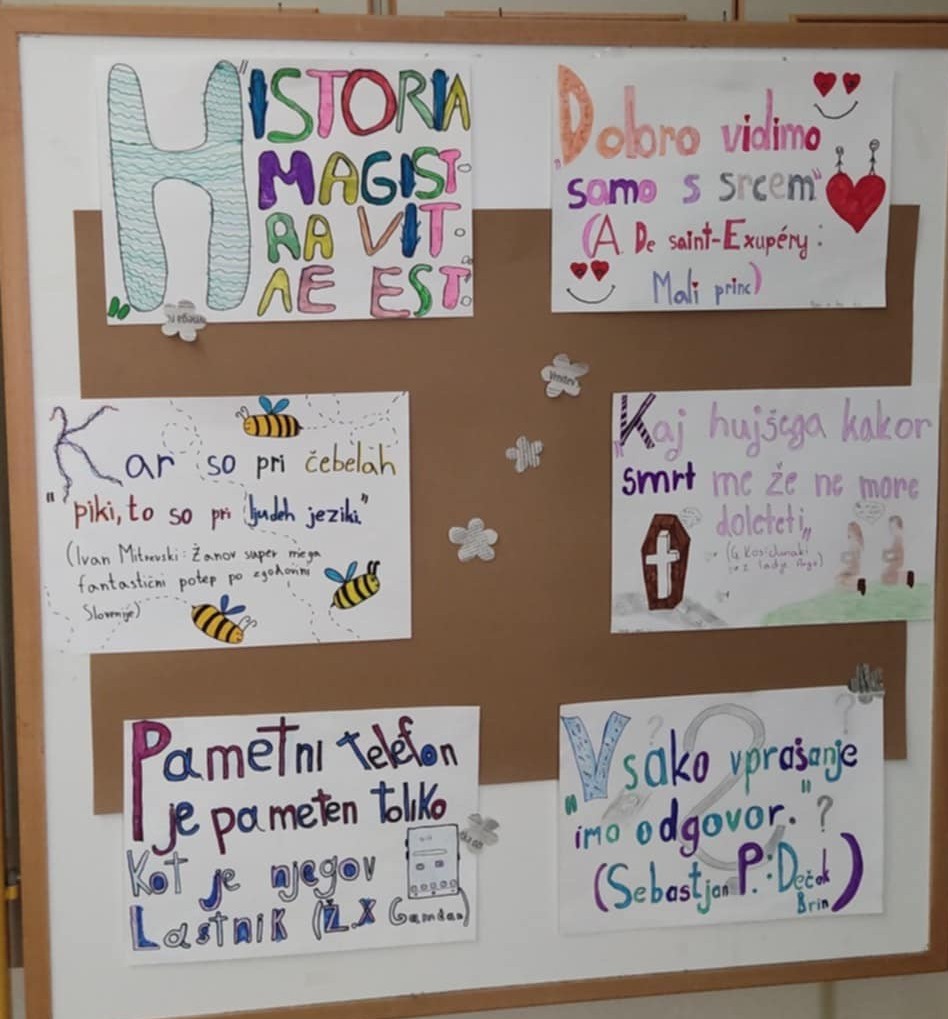 "HISTORIA
MAGIST-
RA VIT-
AE EST"
Dobro vidimo
"samo s srcem"
(A. De saint-Exupéry:
Mali princ)
Kar so pri čebelah
"piki, to so pri ljudeh jeziki."
(Ivan Mitrevski: Žanov super mega
fantastični potep po zgodovini
Slovenije)
"Kaj hujšega kakor
smrt me že ne more
doleteti"
Pametni telefon
je pameten toliko
Kot je njegov
Lastnik (Ž.X Gamdan)
Vsako vprašanje
"ima odgovor." ?
(Sebastjan P.: Deček
Brin)